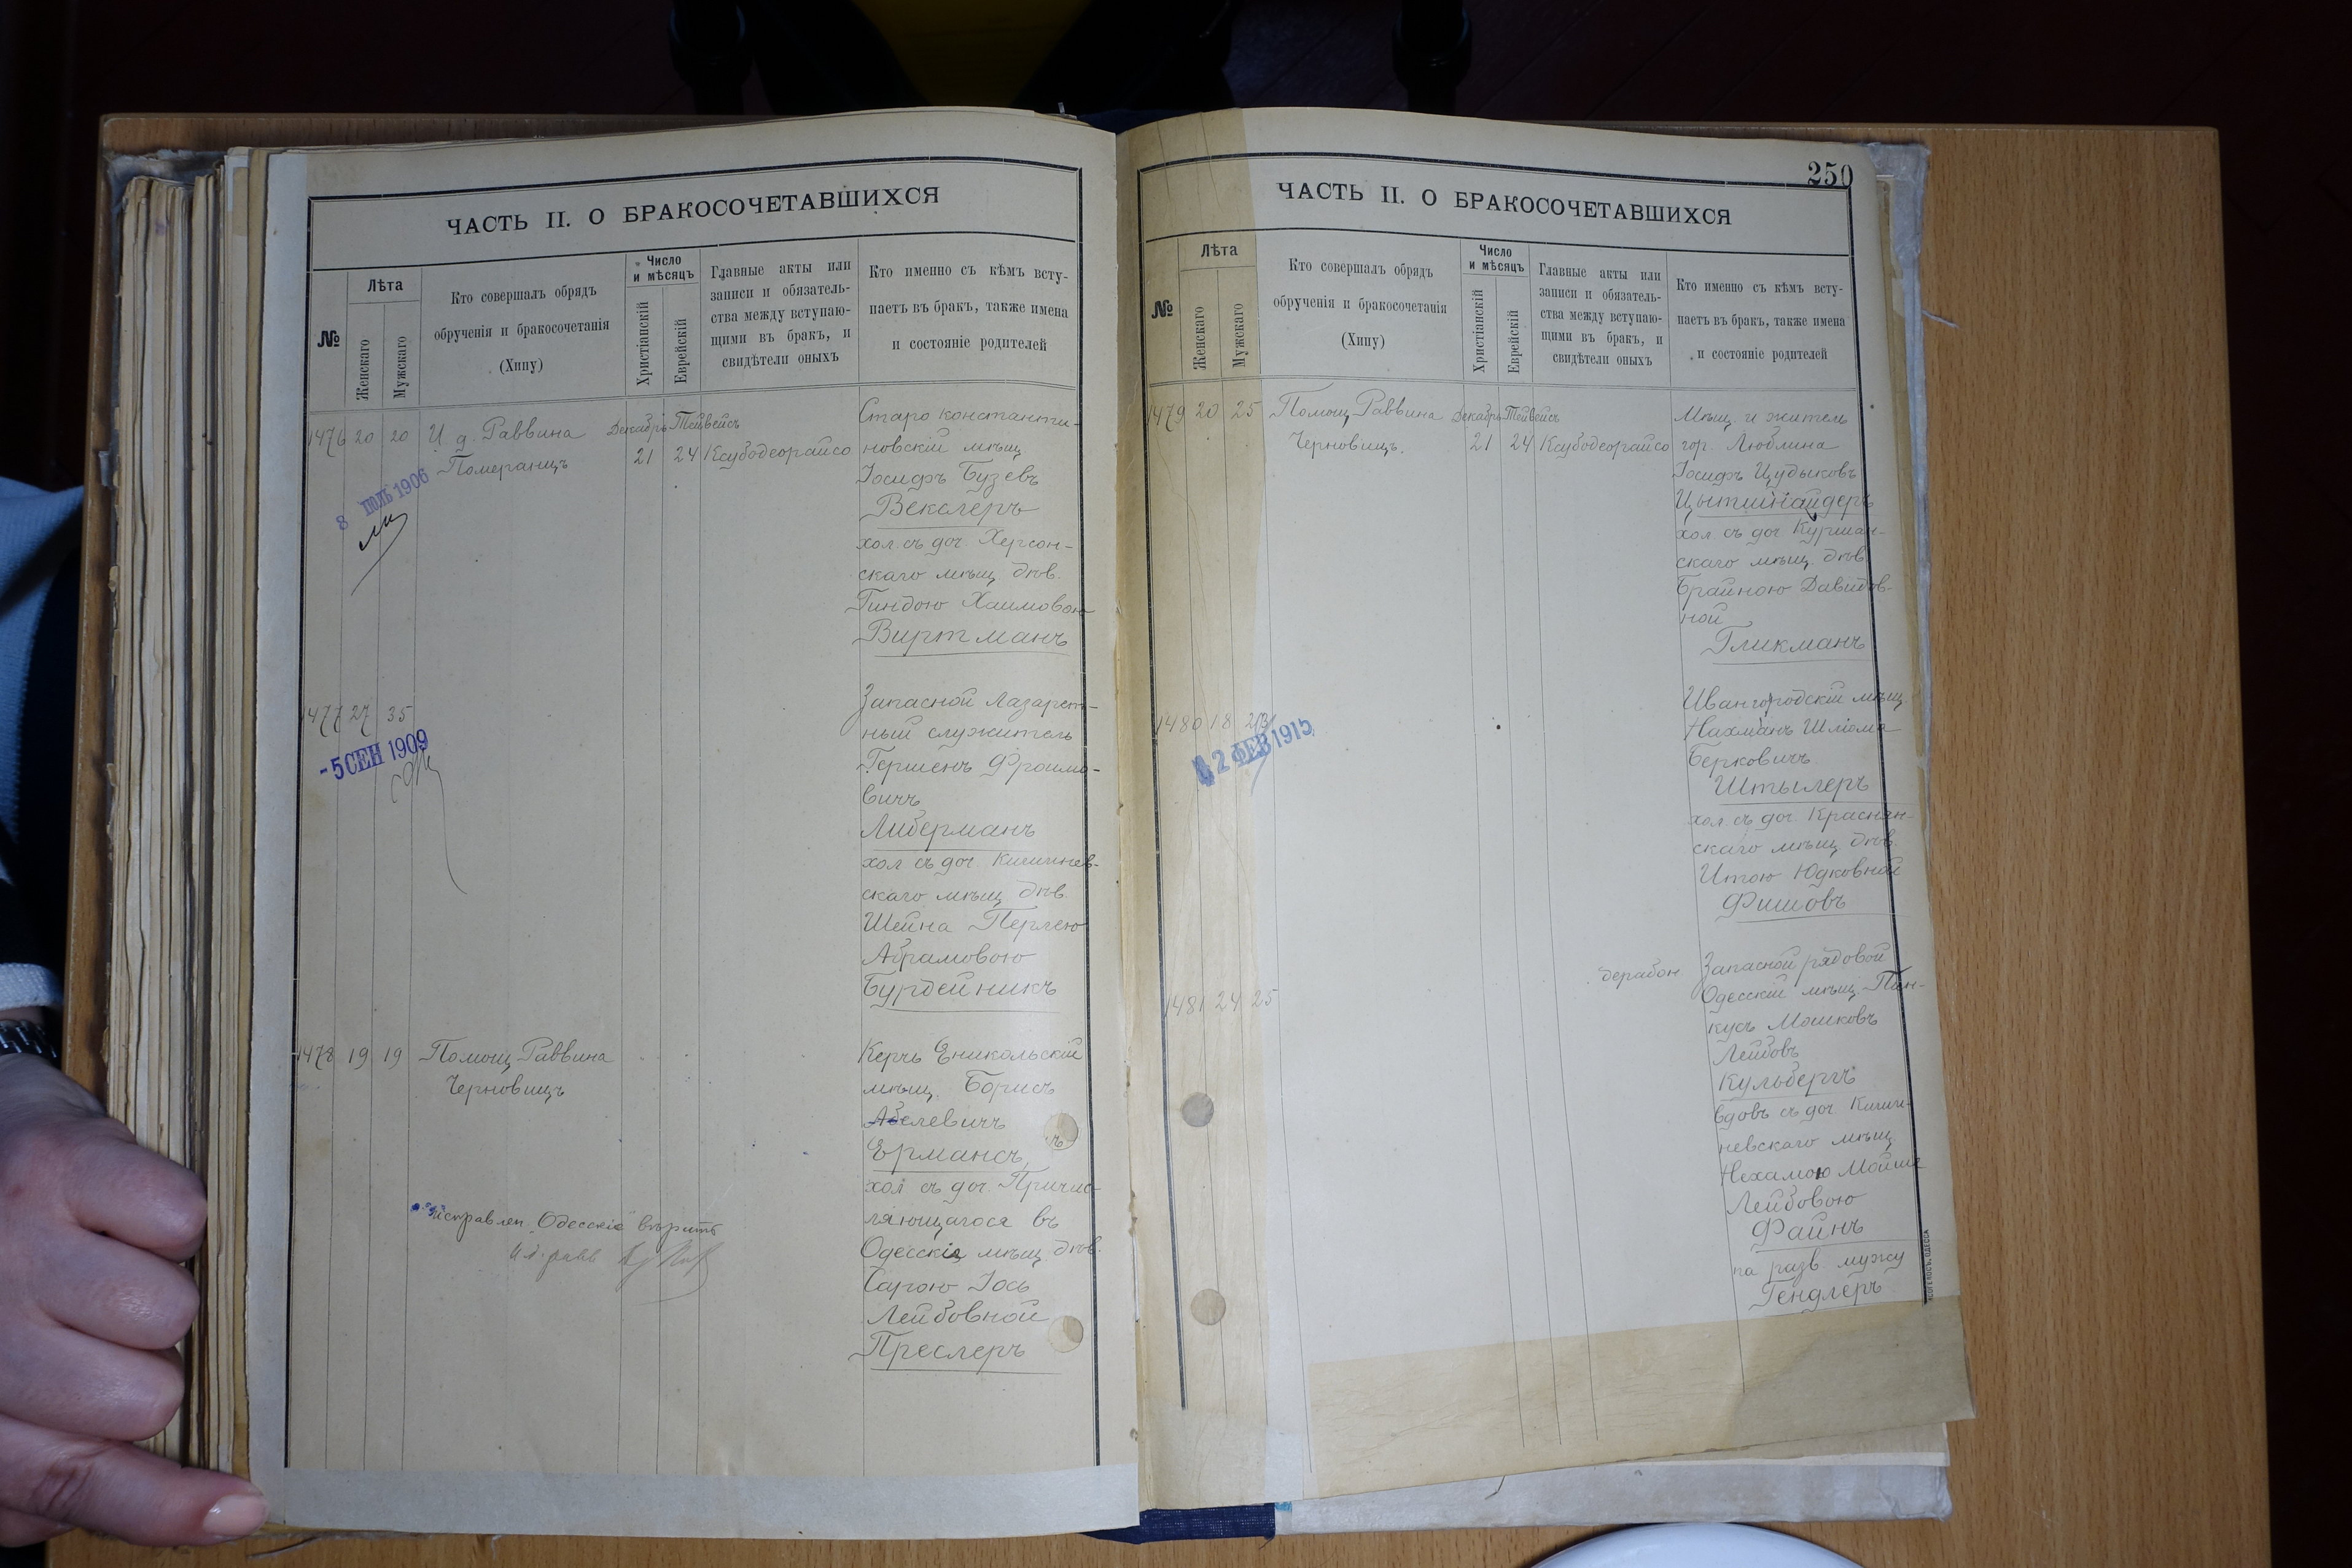 ЧАСТЬ II. О БРАКОСОЧЕТАВШИХСЯ
№
Лѣта
Женскаго
Мужскаго
Кто совершалъ обрядъ
обрученія и бракосочетанія
(Хипу)
Число
и мѣсяцъ
Христіанскій
Еврейскій
Главные акты или
записи и обязатель-
ства между вступаю-
щими въ бракъ, и
свидѣтели оныхъ
Кто именно съ кѣмъ всту-
паетъ въ бракъ, также имена
и состояніе родителей
1476 20 20 И. д. Раввина
Померанцъ
Декабрь Тейвейсъ
21 24 Ксубодеорайсо
8 ІЮЛЬ 1906
Старо константи-
новскій мѣщ
Іосифъ Бузевъ
Векслеръ
хол. съ доч. Херсон-
скаго мѣщ. дѣв.
Гиндою Хаимовою
Виртманъ
1477 27 35
- 5 СЕН 1909
Запасной Лазарет-
ный служитель
Гершенъ Фроимо-
вичъ
Либерманъ
хол съ доч. Кишинев-
скаго мѣщ. дѣв.
Шейна Перлею
Абрамовою
Бурдейникъ
1478 19 19 Помощ. Раввина
Черновицъ
Керчь Еникольскій
мѣщ. Борисъ
Абелевичъ
Ермансъ
хол. съ доч. Причис-
ляющагося въ
Одесскіе мѣщ. дѣв.
Сарою Іось
Лейбовной
Преслеръ
исправлен. „Одесскіе" вѣрить
И. д. равв
250
ЧАСТЬ II. О БРАКОСОЧЕТАВШИХСЯ
№
Лѣта
Женскаго
Мужскаго
Кто совершалъ обрядъ
обрученія и бракосочетанія
(Хипу)
Число
и мѣсяцъ
Христіанскій
Еврейскій
Главные акты или
записи и обязатель-
ства между вступаю-
щими въ бракъ, и
свидѣтели оныхъ
Кто именно съ кѣмъ всту-
паетъ въ бракъ, также имена
и состояніе родителей
1479 20 25 Помощ. Раввина
Черновицъ.
Декабрь Тейвейсъ
21 24 Ксубодеорайсо
Мѣщ. и житель
гор. Люблина
Іосифъ Цудыковъ
хол съ доч Курман-
скаго мѣщ. дѣв.
Брайною Давидов-
ной
Гликманъ
1480 18 23
12 ФЕВ 1915
Ивангородскій мѣщ.
Нахманъ Шлiома
Берковичъ
Штылеръ
хол съ доч. Краснян-
скаго мѣщ. дѣв.
Итою Юдковной
Фишовъ
1481 24 25
дерабон
Запасной рядовой
Одесскій мѣщ. Пин-
кусъ Мошковъ
Лейбовъ
Кульбергъ
вдовъ съ доч. Киши-
невскаго мѣщ.
Нехамою Мойше
Лейбовою
Файнъ
по разв. мужу
Гендлеръ